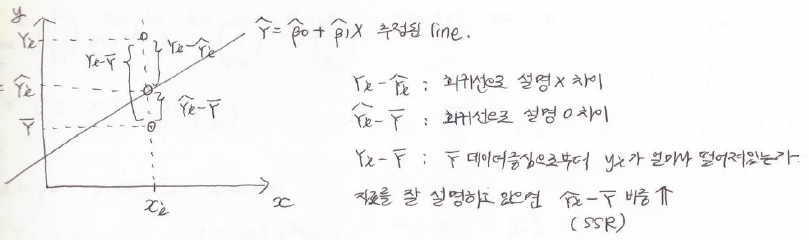 y
Yi
Ŷi
Ȳ
Yi-Ȳ
Yi-Ŷi
Ŷi-Ȳ
xi
x
Ŷ = β̂0 + β̂1X 추정된 line.
Yi-Ŷi : 회귀선으로 설명 X 차이
Ŷi-Ȳ : 회귀선으로 설명 O 차이
Yi-Ȳ : Ȳ 데이터중심으로부터 yi가 얼마나 떨어져있는가.
자료를 잘 설명하고 있으면 Ŷi-Ȳ 비중 ⇑
(SSR)